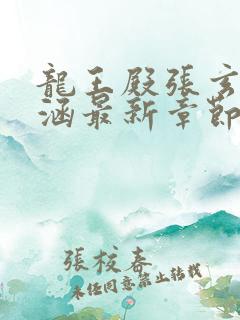 龍王殿張玄
涵最新章節
張校春
未任同意禁止轉載